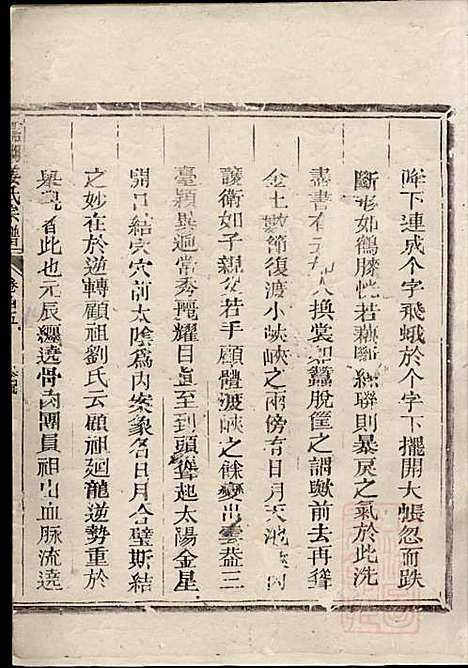 降下連成个字飛蛾於个字下擺開大帳忽而跌
斷形如鶴膝恍若藕斷絲聯則暴戾之氣於此洗
盡書有云如人換裳如蠶脫筐之謂歟前去再聳
金土數節復渡小峽峽之兩傍有日月天池
護衛如子親父若手顧體渡峽之餘變出雲蓋三
臺穎異逈常秀麗耀日直至到頭聳起太陽金星
開口結穴穴前太陰為內案象名日月合璧斯結
之妙在於逆轉顧祖劉氏云顧祖廻龍逆勢重於
此也元辰纏遶骨肉團員祖山血脉流遶
姜氏宗譜
卷之五